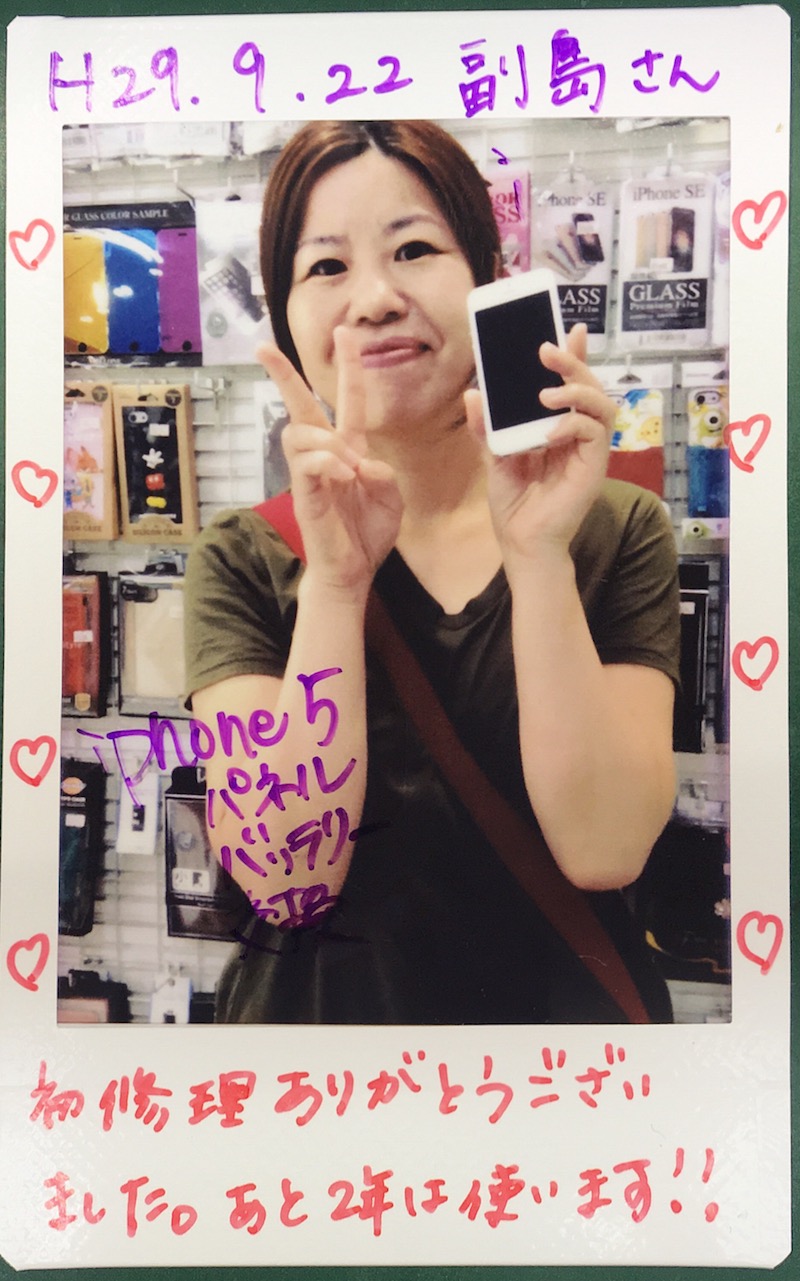 H29.9.22 副島さん
GLASS COLOR SAMPLE
iPhone SE
GLASS
Premium Film
iPhone SE
GLASS
SILICON CASE
iPhone5
パネル
バッテリー
交換
初修理ありがとうござい
ました。あと2年は使います!!